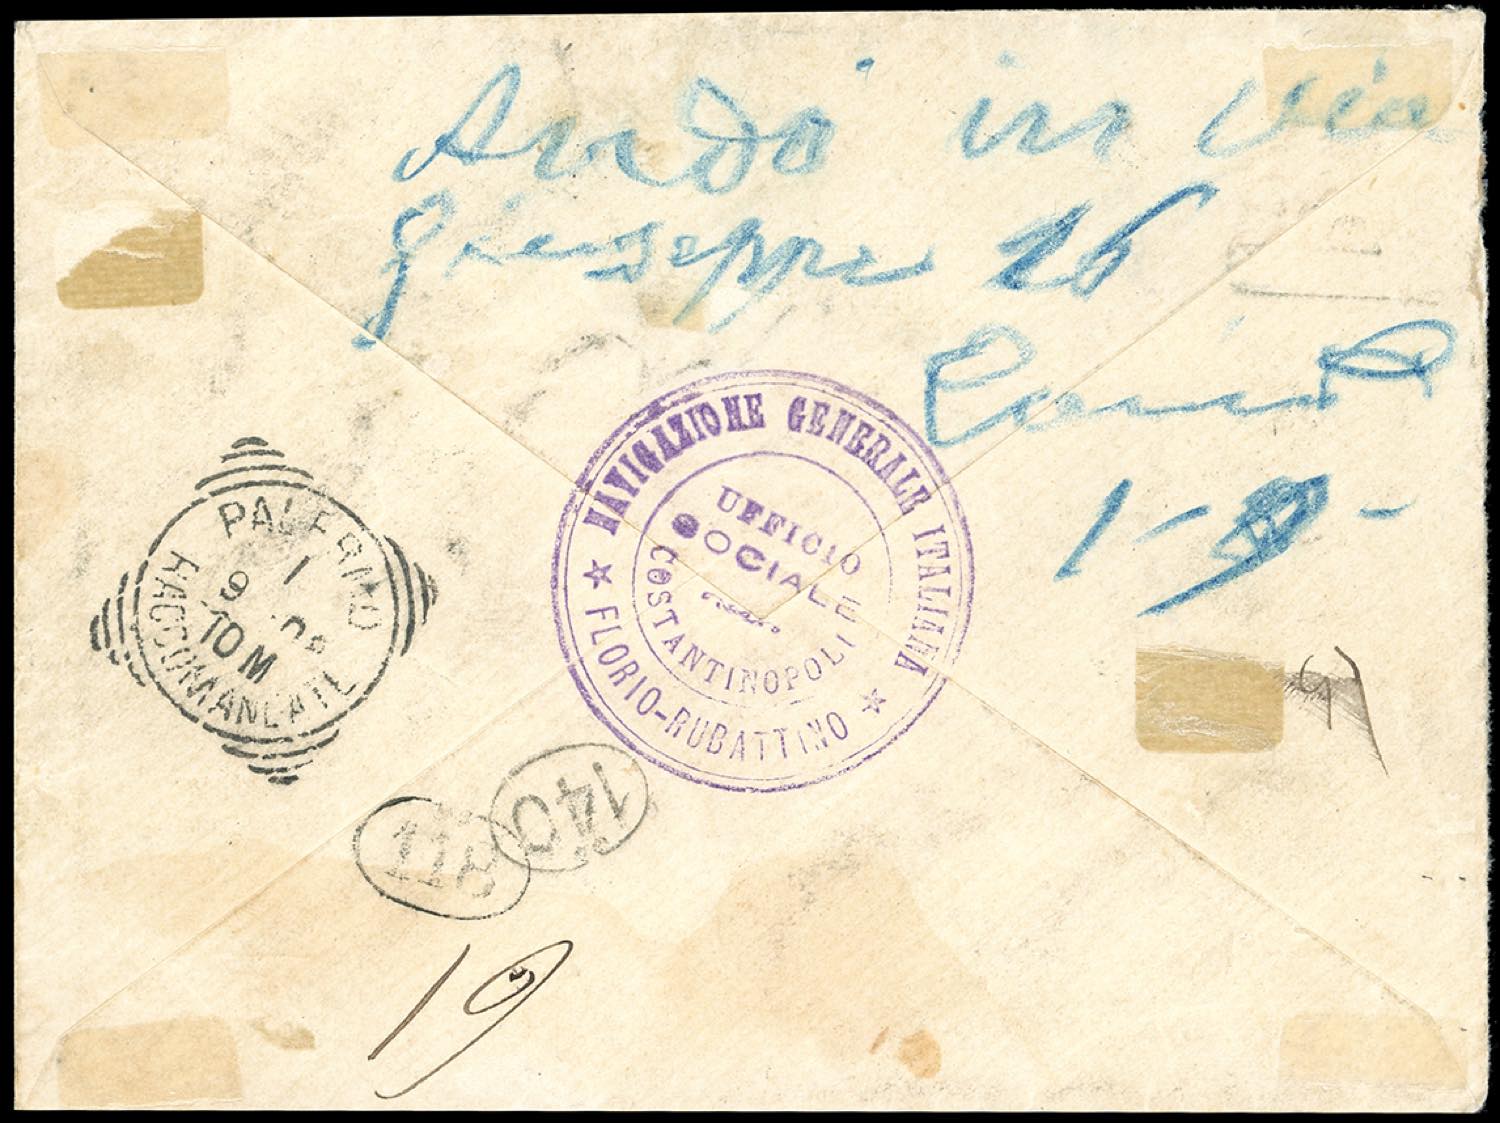 Andò in via
Giuseppe 26
1-9-
NAVIGAZIONE GENERALE ITALIANA
UFFICIO
SOCIALE
COSTANTINOPOLI
★ FLORIO-RUBATTINO ★
PALERMO
1
9
10 M
RACCOMANDATE
140
19